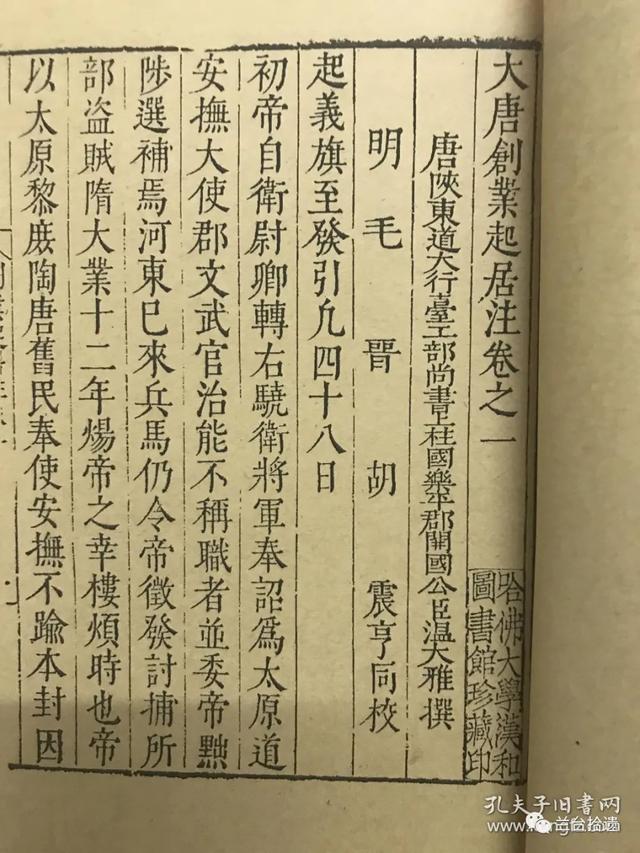 大唐創業起居注卷之一
哈佛大學漢和
圖書館珍藏印
唐陝東道大行臺工部尚書上柱國樂平郡開國公臣温大雅撰
明毛晉胡震亨同校
起義旗至發引凢四十八日
初帝自衛尉卿轉右驍衛將軍奉詔爲太原道
安撫大使郡文武官治能不稱職者並委帝黜
陟選補焉河東已來兵馬仍令帝徵發討捕所
部盗賊隋大業十二年煬帝之幸樓煩時也帝
以太原黎庶陶唐舊民奉使安撫不踰本封因
孔夫子旧书网
兰台拾遗